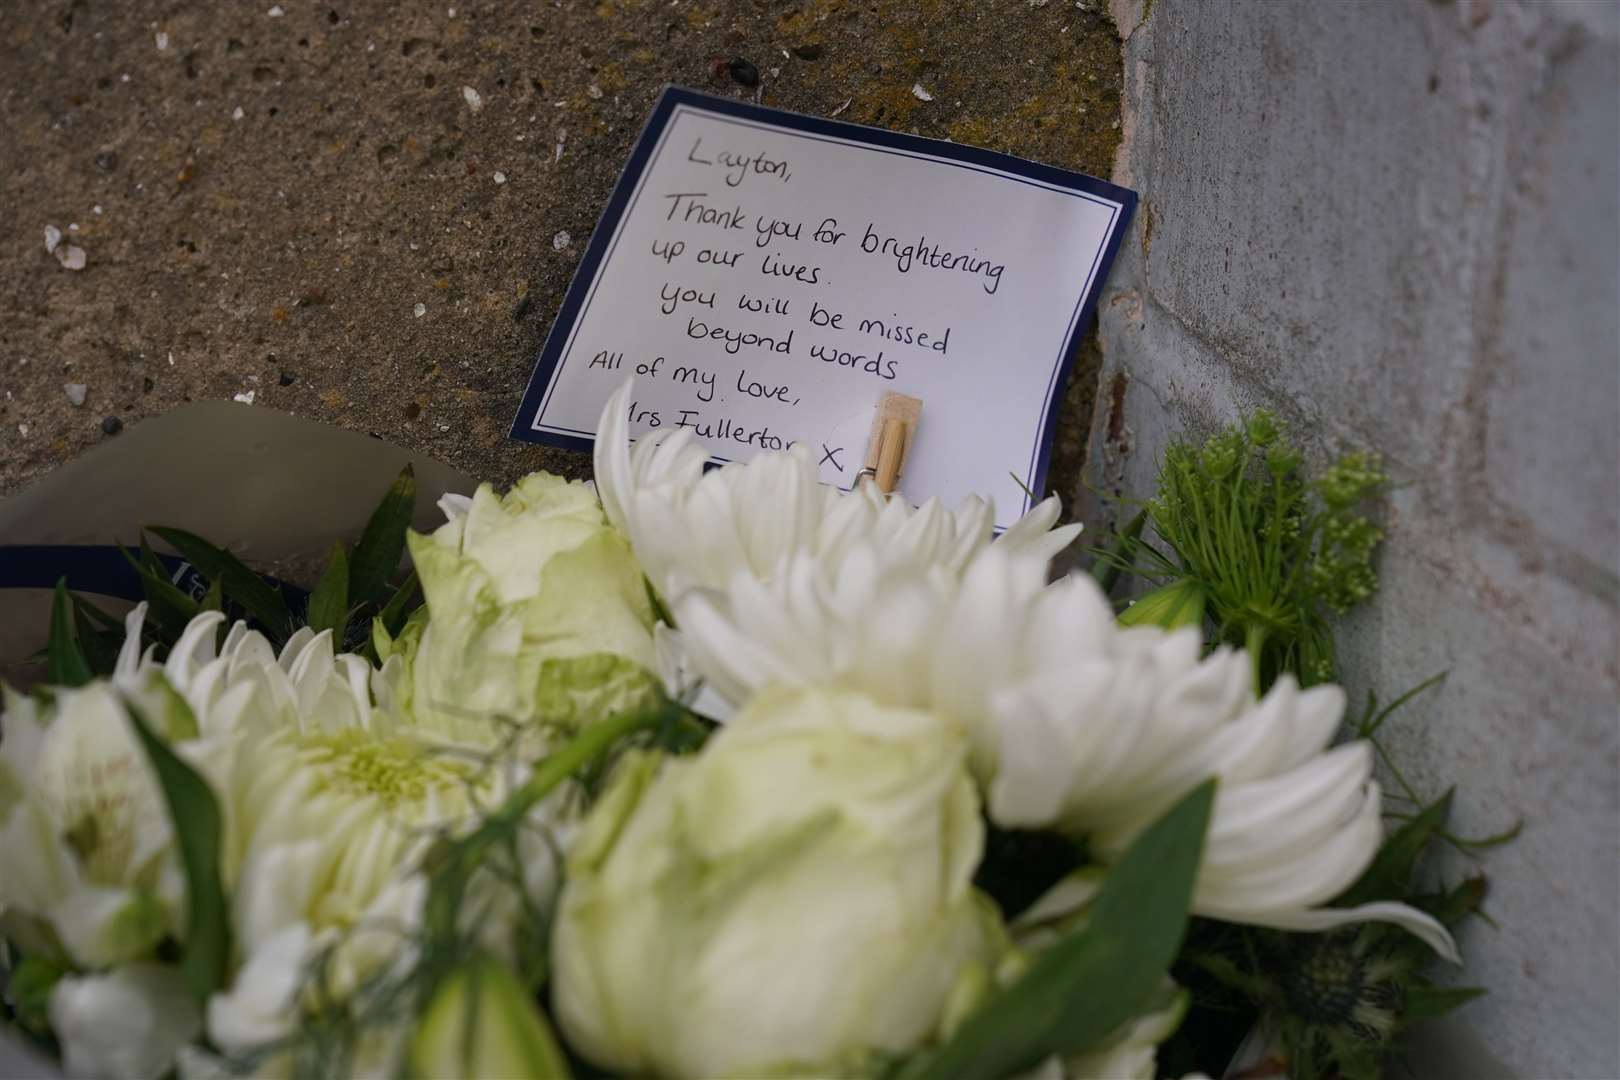 Layton,
Thank you for brightening
up our lives.
you will be missed
beyond words
All of my love,
Mrs Fullerton X